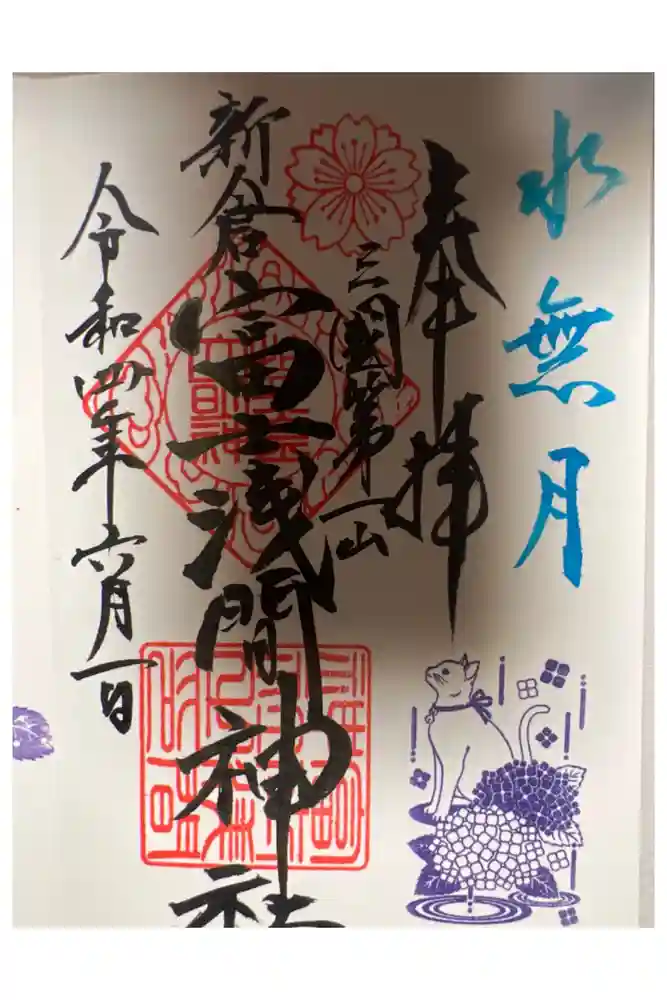 水無月
奉拝
三国第一山
新倉富士浅間神社
令和四年六月一日